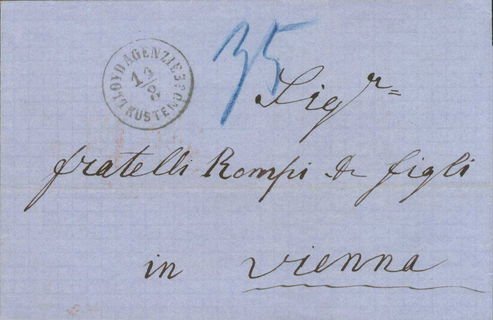 LLOYD AGENZIE
KUSTENDJE
12/8
35
Sigr
fratelli Rompi & figli
in Vienna